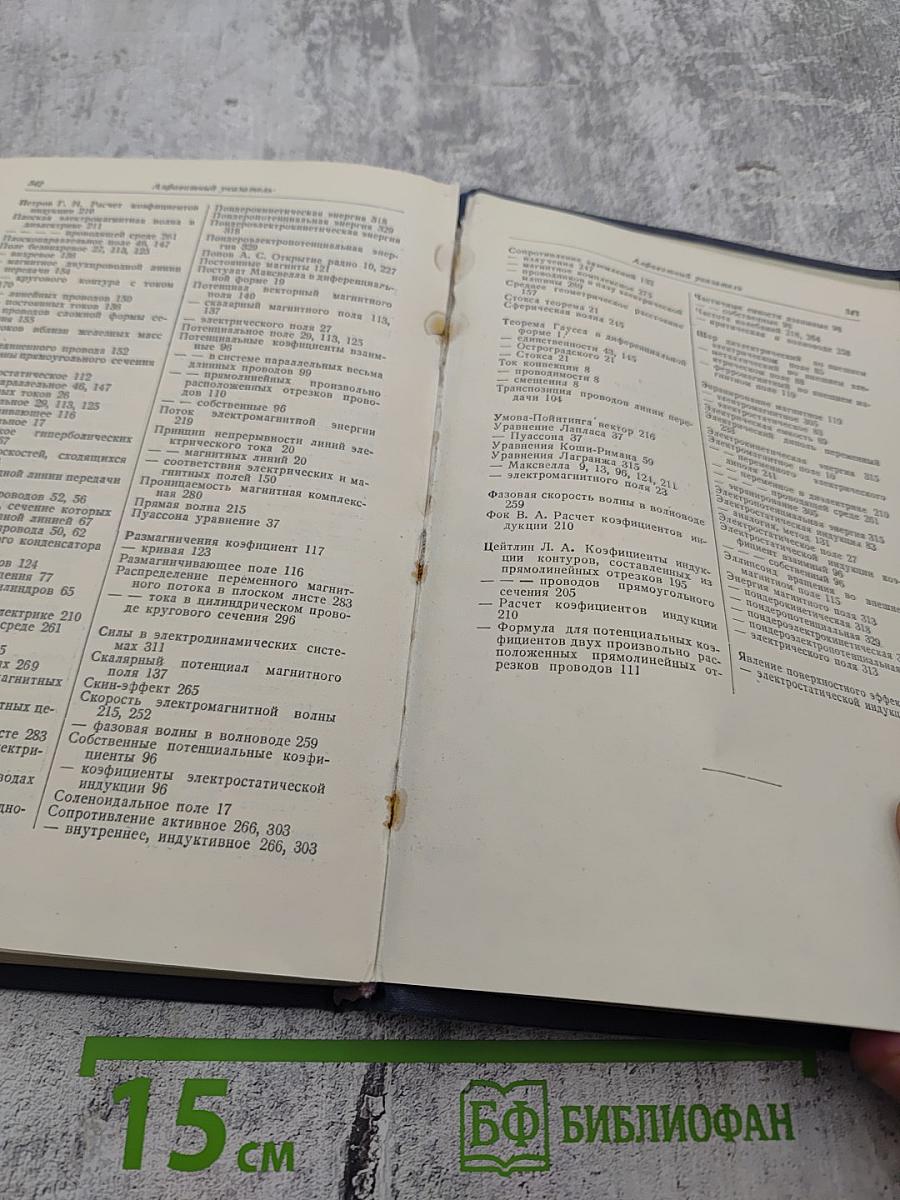 342
Алфавитный указатель
Петров Г. Н. Расчет коефициентов
индукции 210
Плоская электромагнитная волна в
диэлектрике 211
— — — проводящей среде 261
Плоскопараллельное поле 46, 147
Поле безвихревое 27, 113, 125
— вихревое 138
— магнитное двухпроводной линии
передачи 154
— кругового контура с током
170
линейных проводов 150
постоянных токов 136
проводов сложной формы се-
токов вблизи железных масс
провода 152
прямоугольного сечения
статическое 112
46, 147
ных токов 26
29, 113, 125
116
17
гиперболических
сходящихся
линии передачи
проводов 52, 56
сечение которых
линией 67
провода 50, 62
конденсатора
124
77
65
210
среде 261
269
283
Пондерокинетическая энергия 318
Пондеропотенциальная энергия 329
Пондероэлектрокинетическая энергия
318
Пондероэлектропотенциальная энер-
гия 329
Попов А. С. Открытие радио 10, 227
Постоянные магниты 121
Постулат Максвелла в диференциаль-
ной форме 19
Потенциал векторный магнитного
поля 140
— скалярный магнитного поля 113,
137
— электрического поля 27
Потенциальное поле 29, 113, 125
Потенциальные коефициенты взаим-
ные 96
— — в системе параллельных весьма
длинных проводов 99
— — прямолинейных произвольно
расположенных отрезков прово-
дов 110
— — собственные 96
Поток электромагнитной энергии
219
Принцип непрерывности линий эле-
ктрического тока 20
— — магнитных линий 20
— соответствия электрических и ма-
гнитных полей 150
Проницаемость магнитная комплекс-
ная 280
Прямая волна 215
Пуассона уравнение 37
Размагничения коефициент 117
— кривая 123
Размагничивающее поле 116
Распределение переменного магнит-
ного потока в плоском листе 283
— — тока в цилиндрическом прово-
де кругового сечения 296
Силы в электродинамических систе-
мах 311
Скалярный потенциал магнитного
поля 137
Скин-эффект 265
Скорость электромагнитной волны
215, 252
— фазовая волны в волноводе 259
Собственные потенциальные коэфи-
циенты 96
— коэфициенты электростатической
индукции 96
Соленоидальное поле 17
Сопротивление активное 266, 303
— внутреннее, индуктивное 266, 303
Алфавитный указатель
343
Сопротивление заземления 132
— излучения 247
— магнитное комплексное 275
— проводников в пазу электрической
машины 289
Среднее геометрическое расстояние
157
Стокса теорема 21
Сферическая волна 245
Теорема Гаусса в диференциальной
форме 17
— единственности 43, 145
— Остроградского 21
— Стокса 21
Ток конвекции 8
— проводимости 8
— смещения 8
Транспозиция проводов линии пере-
дачи 104
Умова-Пойнтинга вектор 216
Уравнение Лапласа 37
— Пуассона 37
Уравнения Коши-Римана 59
Уравнения Лагранжа 315
— Максвелла 9, 13, 96, 124, 211
— электромагнитного поля 23
Фазовая скорость волны в волноводе
259
Фок В. А. Расчет коефициентов ин-
дукции 210
Цейтлин Л. А. Коефициенты индук-
ции контуров, составленных из
прямолинейных отрезков 195
— — — проводов прямоугольного
сечения 205
— Расчет коефициентов индукции
210
— Формула для потенциальных коэ-
фициентов двух произвольно рас-
положенных прямолинейных от-
резков проводов 111
Частичные емкости взаимные 96
— — собственные 96
Частота колебаний 214, 254
— критическая в волноводе 258
Шар диэлектрический во внешнем
электрическом поле 85
Экранирование магнитное 119
— электромагнитное 305
— электростатическое 83
Электрическая емкость 69
Электрокинетическая энергия 315
Электромагнитное поле 10
— — переменного электрического
диполя 241
— — переменное в диэлектрике 210
— — — проводящей среде 261
— экранирование 305
Электропотенциальная энергия 315
Электростатическая индукция 83
— аналогия, метод 131
Электростатическое поле 27
Электростатической индукции коэ-
фициент взаимный 96
— — собственный 96
Эллипсоид вращения во внешнем
магнитном поле 115
Энергия магнитного поля 313
— пондерокинетическая 318
— пондеропотенциальная 329
— пондероэлектрокинетическая
— пондероэлектропотенциальная
— электрического поля 313
Явление поверхностного эффек
— электростатической индукц
15 см
БФ БИБЛИОФАН